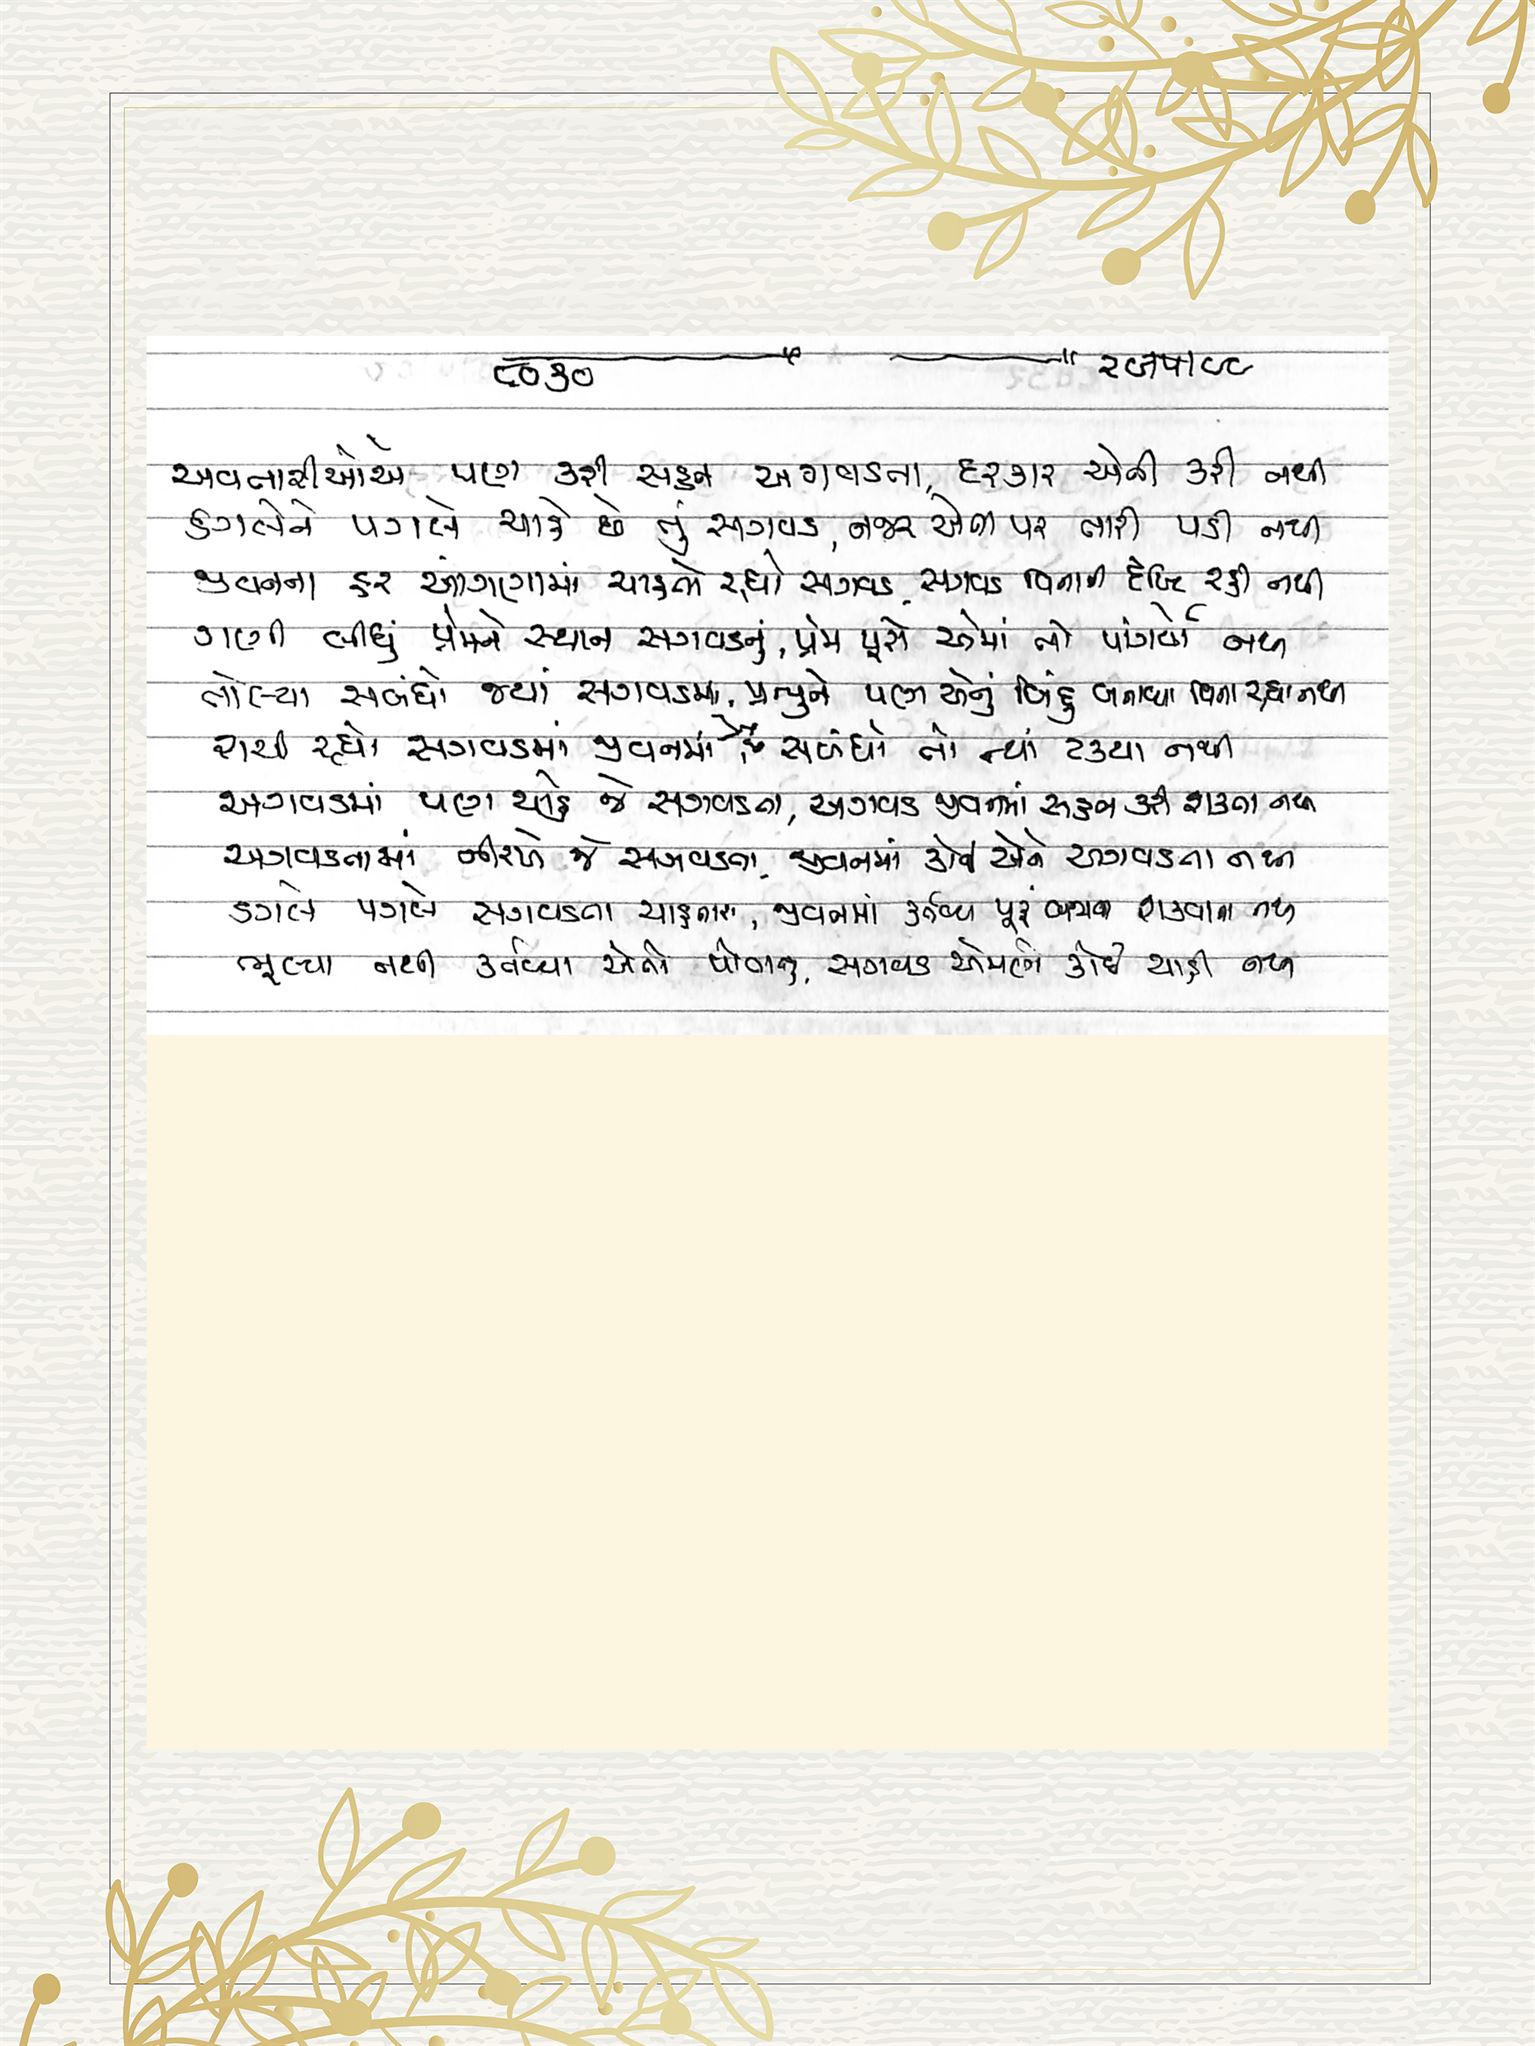 ૮૦૩૦
અવતારીઓએ પણ કરી સહન અગવડતા, દરકાર એની કરી નથી
ડગલેને પગલે ચાહે છે તું સગવડ, નજર એના પર તારી પડી નથી
જીવનના હર આંગણામાં ચાહતો રહ્યો સગવડ, સગવડ વિનાની દૃષ્ટિ રહી નથી
ગણી લીધું પ્રેમને સ્થાન સગવડનું, પ્રેમ પૂરો એમાં તો પાંગર્યો નથી
તોલ્યા સબંધો જ્યાં સગવડમાં, પ્રભુને પણ એનું બિંદુ બનાવ્યા વિના રહ્યા નથી
રાચી રહ્યો સગવડમાં જીવનમાં જે સબંધો તો ત્યાં ટક્યા નથી
અગવડમાં પણ ચાહે જે સગવડતા, અગવડ જીવનમાં સહન કરી શકતા નથી
અગવડતામાં નીરખે જે સગવડતા, જીવનમાં કોઈ એને અગવડતા નથી
ડગલે પગલે સગવડતા ચાહનારા, જીવનમાં કર્તવ્ય પૂરું બજાવી શકવાના નથી
ભૂલ્યા નથી કર્તવ્યો એનો પોતાનું, સગવડ એમણે કોઈ ચાહી નથી